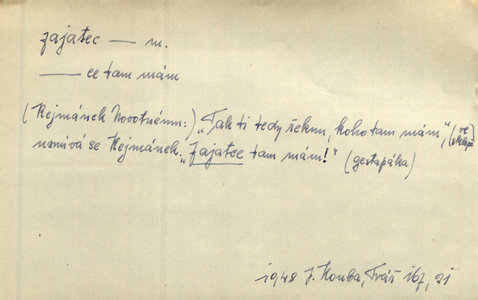 zajatec — m.
— ce tam mám
(Hejmánek Novotnému:) „Tak ti tedy řeknu, koho tam mám," (ve sklepě)
usmívá se Hejmánek. „Zajatce tam mám!" (gestapáka)
1948 J. Kouba, Tvář 167, 21